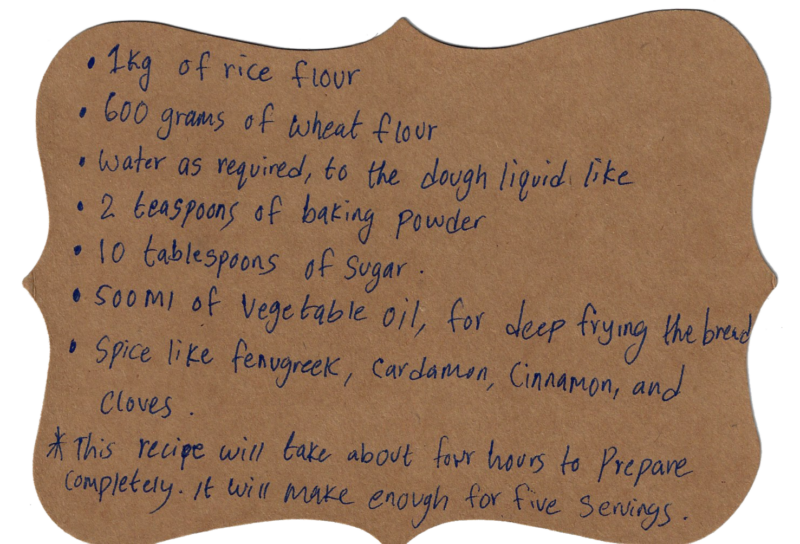 • 1kg of rice flour
• 600 grams of wheat flour
• water as required, to the dough liquid like
• 2 teaspoons of baking powder
• 10 tablespoons of sugar.
• 500ml of vegetable oil, for deep frying the bread
• Spice like fenugreek, cardamon, Cinnamon, and
Cloves.
* This recipe will take about four hours to Prepare
Completely. It will make enough for five servings.